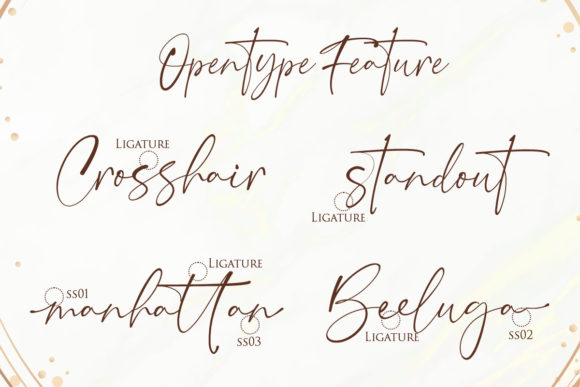 Opentype Feature
Ligature
Crosshair
standout
Ligature
Ligature
SS01
manhattan
SS03
Beeluga
Ligature
SS02